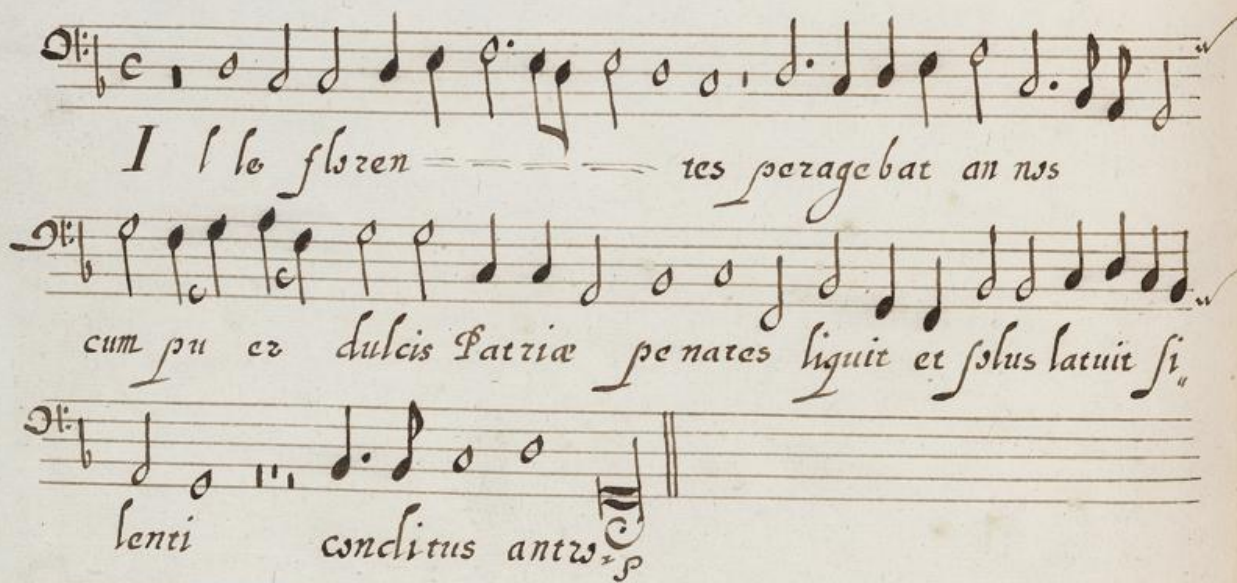 Ille floren tes peragebat annos
cum puer dulcis Patriæ penates liquit et solus latuit si„
lenti conditus antro.